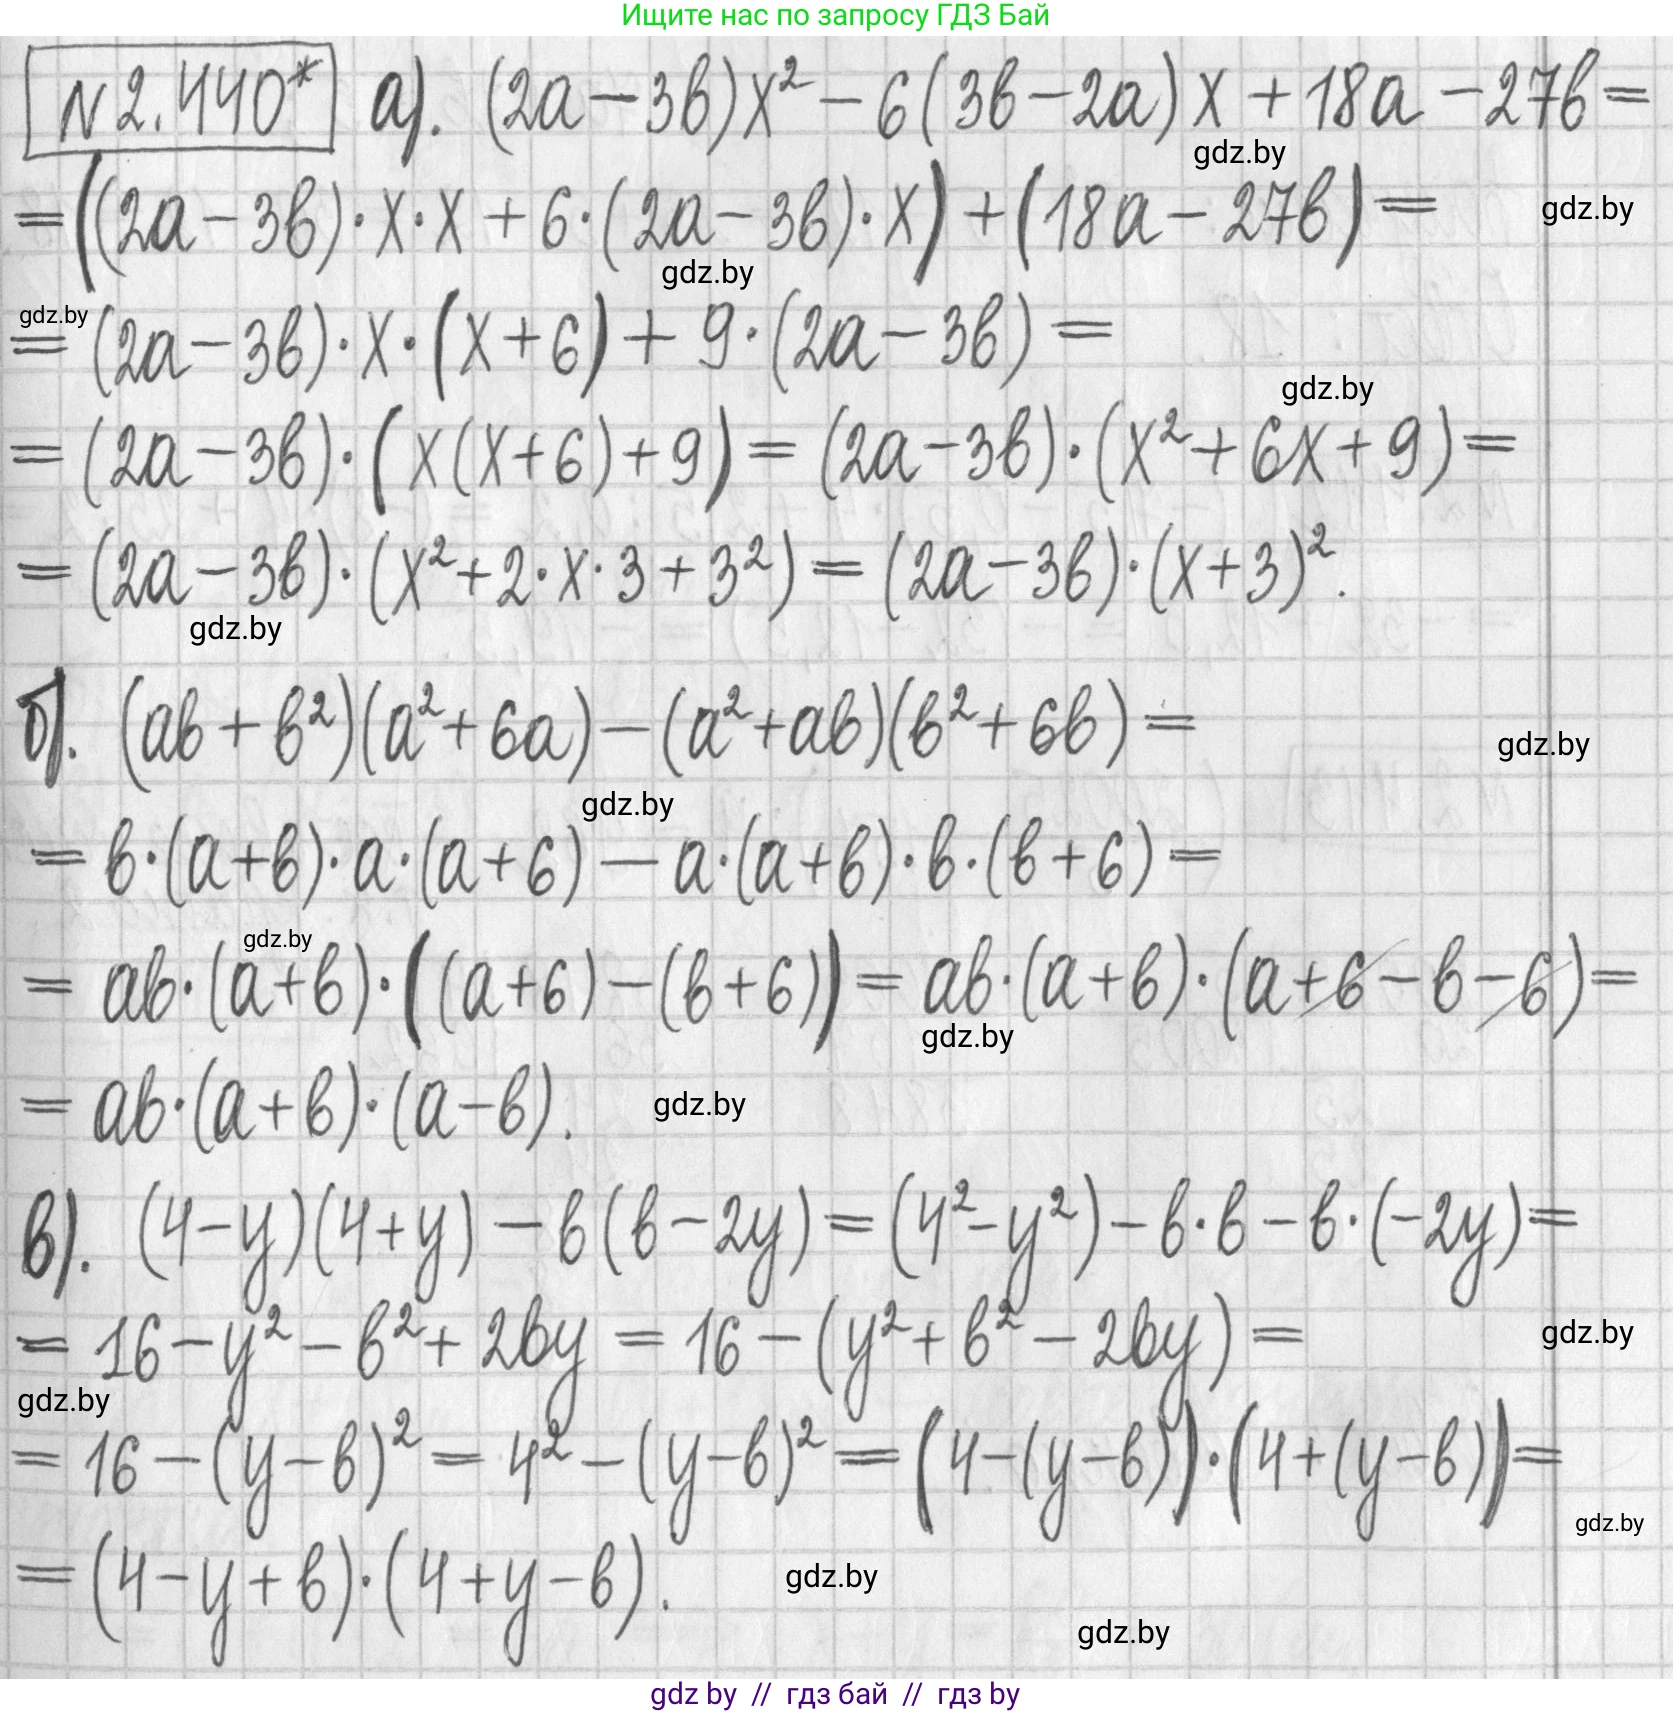 Ищите нас по запросу ГДЗ Бай
N2.440* а). (2a-3b)x²-6(3b-2a)x+18a-27b=
gdz.by
=((2a-3b)·x·x+6·(2a-3b)·x)+(18a-27b)=
gdz.by
gdz.by
gdz.by
=(2a-3b)·x·(x+6)+9·(2a-3b)=
gdz.by
=(2a-3b)·(x(x+6)+9)=(2a-3b)·(x²+6x+9)=
=(2a-3b)·(x²+2·x·3+3²)=(2a-3b)·(x+3)².
gdz.by
б). (ab+b²)(a²+6a)-(a²+ab)(b²+6b)=
gdz.by
gdz.by
=b·(a+b)·a·(a+6)-a·(a+b)·b·(b+6)=
gdz.by
=ab·(a+b)·((a+6)-(b+6))=ab·(a+b)·(a+6-b-6)=
gdz.by
=ab·(a+b)·(a-b).
gdz.by
в). (4-y)(4+y)-b(b-2y)=(4²-y²)-b·b-b·(-2y)=
=16-y²-b²+2by=16-(y²+b²-2by)=
gdz.by
gdz.by
=16-(y-b)²=4²-(y-b)²=(4-(y-b))·(4+(y-b))=
gdz.by
=(4-y+b)·(4+y-b).
gdz.by
gdz.by
gdz by // гдз бай // гдз by